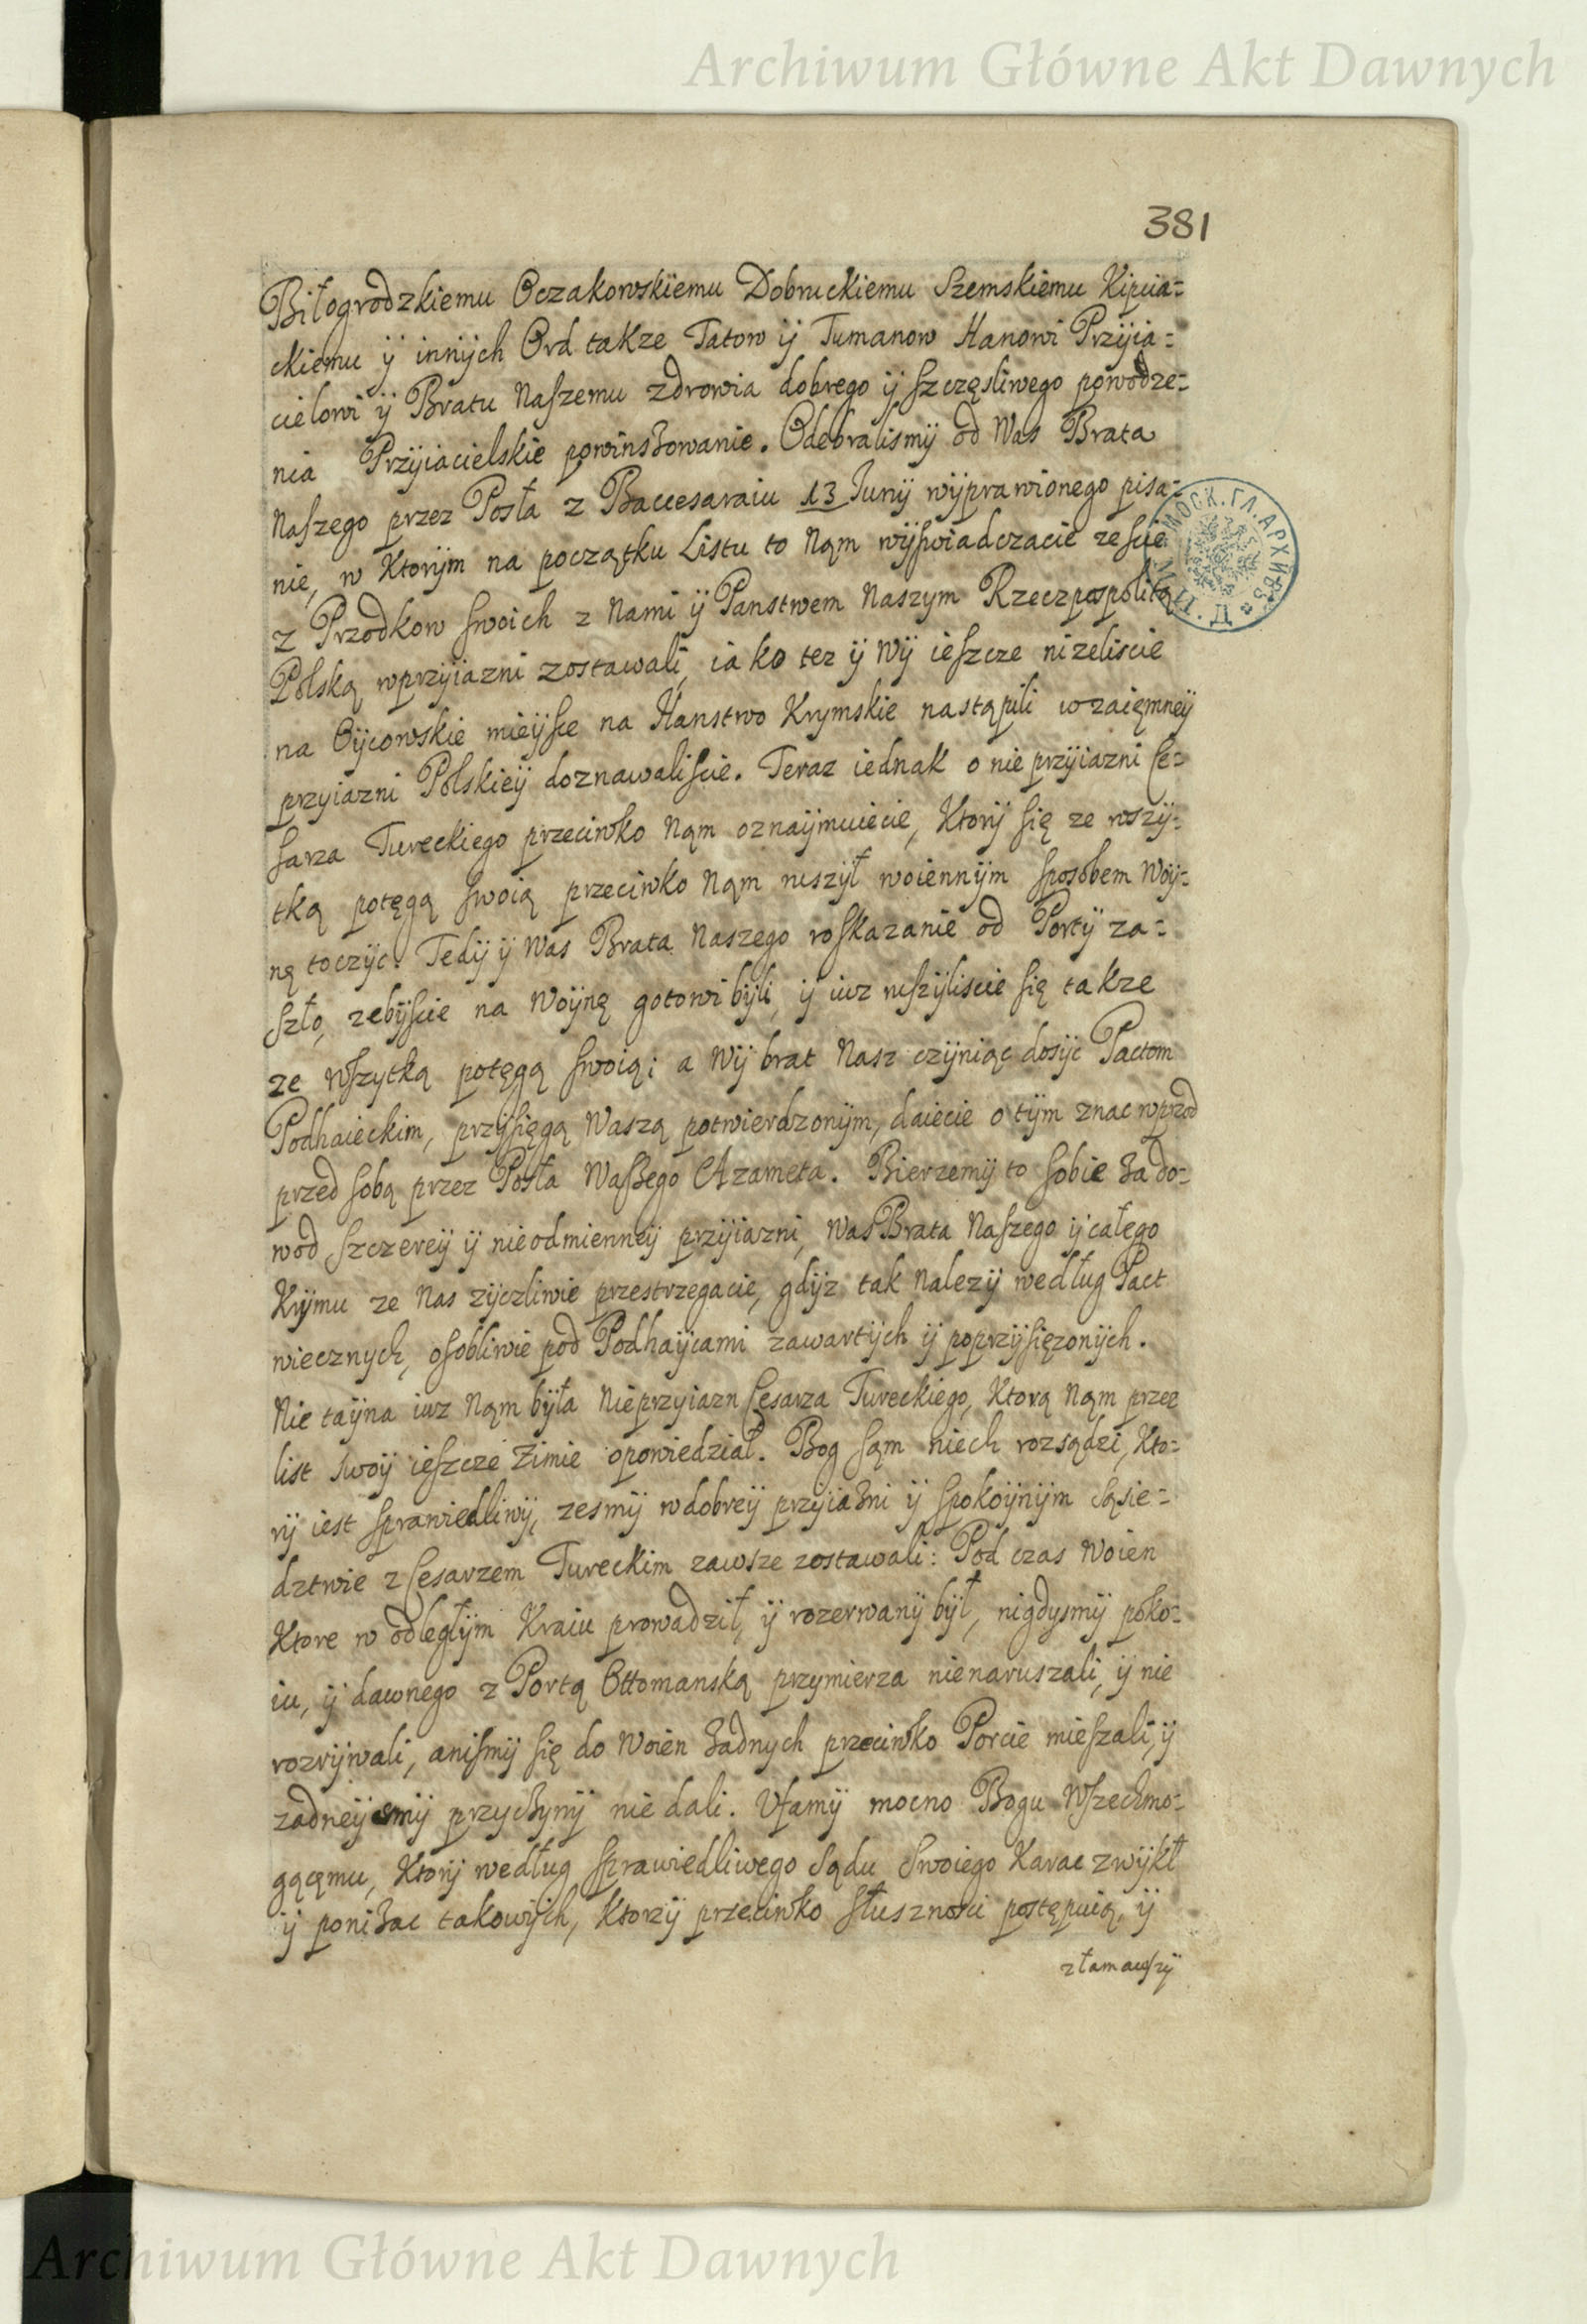 Archiwum Główne Akt Dawnych
381
Biłogrodzkiemu Oczakowskiemu Dobruckiemu Szemskiemu Kipcia-
ckiemu ÿ innÿch Ord takze Tatow ÿ Tumanow Hanowi Przÿia-
cielowi ÿ Bratu Naszemu zdrowia dobrego ÿ szczęsliwego powodze-
nia Przÿiacielskie powinszowanie. Odebralismÿ od Was Brata
Naszego przez Posła z Baccesaraiu 13 Iunÿ wÿprawionego pisa-
nie, w Ktorÿm na początku Listu to Nąm wÿswiadczacie ze scie
z Przodkow swoich z Nami ÿ Panstwem Naszym Rzecząpospolitą
Polską wprzÿiazni zostawali, iako tez ÿ Wÿ ieszcze nizeliscie
na Oÿcowskie mieÿsce na Hanstwo Krymskie nastąpili wzaięmneÿ
przyiazni Polskieÿ doznawaliscie. Teraz iednak o nieprzÿiazni Ce-
sarza Tureckiego przeciwko Nąm oznaÿmuiecie, Ktorÿ się ze wszÿ-
tką potęgą swoią przeciwko Nąm ruszÿł woiennÿm sposobem Woÿ-
nę toczÿc. Tedÿ ÿ Was Brata Naszego roskazanie od Portÿ za-
szło, zebÿscie na Woÿnę gotowi bÿli, ÿ iuz ruszÿliscie się takze
ze wszytką potęgą swoią; a Wÿ brat Nasz czÿniąc dosÿc Pactom
Podhaieckim, przÿsięgą Waszą potwierdzonÿm, daiecie o tÿm znac wprzod
przed sobą przez Posła Waszego Azameta. Bierzemÿ to sobie za do-
wod szczereÿ ÿ nieodmienneÿ przÿiazni, Was Brata Naszego ÿ całego
Krÿmu ze Nas zÿczliwie przestrzegacie, gdÿz tak Nalezÿ według Pact
wiecznych, osobliwie pod Podhaÿcami zawartÿch ÿ poprzÿsięzonÿch.
Nie taÿna iuz Nąm bÿła Nieprzyiazn Cesarza Tureckiego, Ktorą Nąm przez
list swoÿ ieszcze Zimie opowiedział. Bog sąm niech rozsądzi, Kto-
rÿ iest sprawiedliwÿ, zesmÿ wdobreÿ przÿiazni ÿ spokoÿnÿm sąsie-
dztwie z Cesarzem Tureckim zawsze zostawali: Pod czas Woien
Ktore w odległÿm Kraiu prowadził, ÿ rozerwanÿ bÿł, nigdysmÿ poko-
iu, ÿ dawnego z Portą Ottomanską przymierza nienaruszali, ÿ nie
rozrÿwali, anismÿ się do Woien zadnych przeciwko Porcie mieszali, ÿ
zadneÿ smÿ przyczynÿ nie dali. Ufamÿ mocno Bogu Wszechmo-
gącąmu, Ktorÿ według sprawiedliwego sądu swoiego Karac zwÿkł
ÿ ponizac takowÿch, Ktorzÿ przeciwko słusznosci postępuią, ÿ
złamawszÿ
МОСК. ГЛ. АРХИВЪ
Archiwum Główne Akt Dawnych